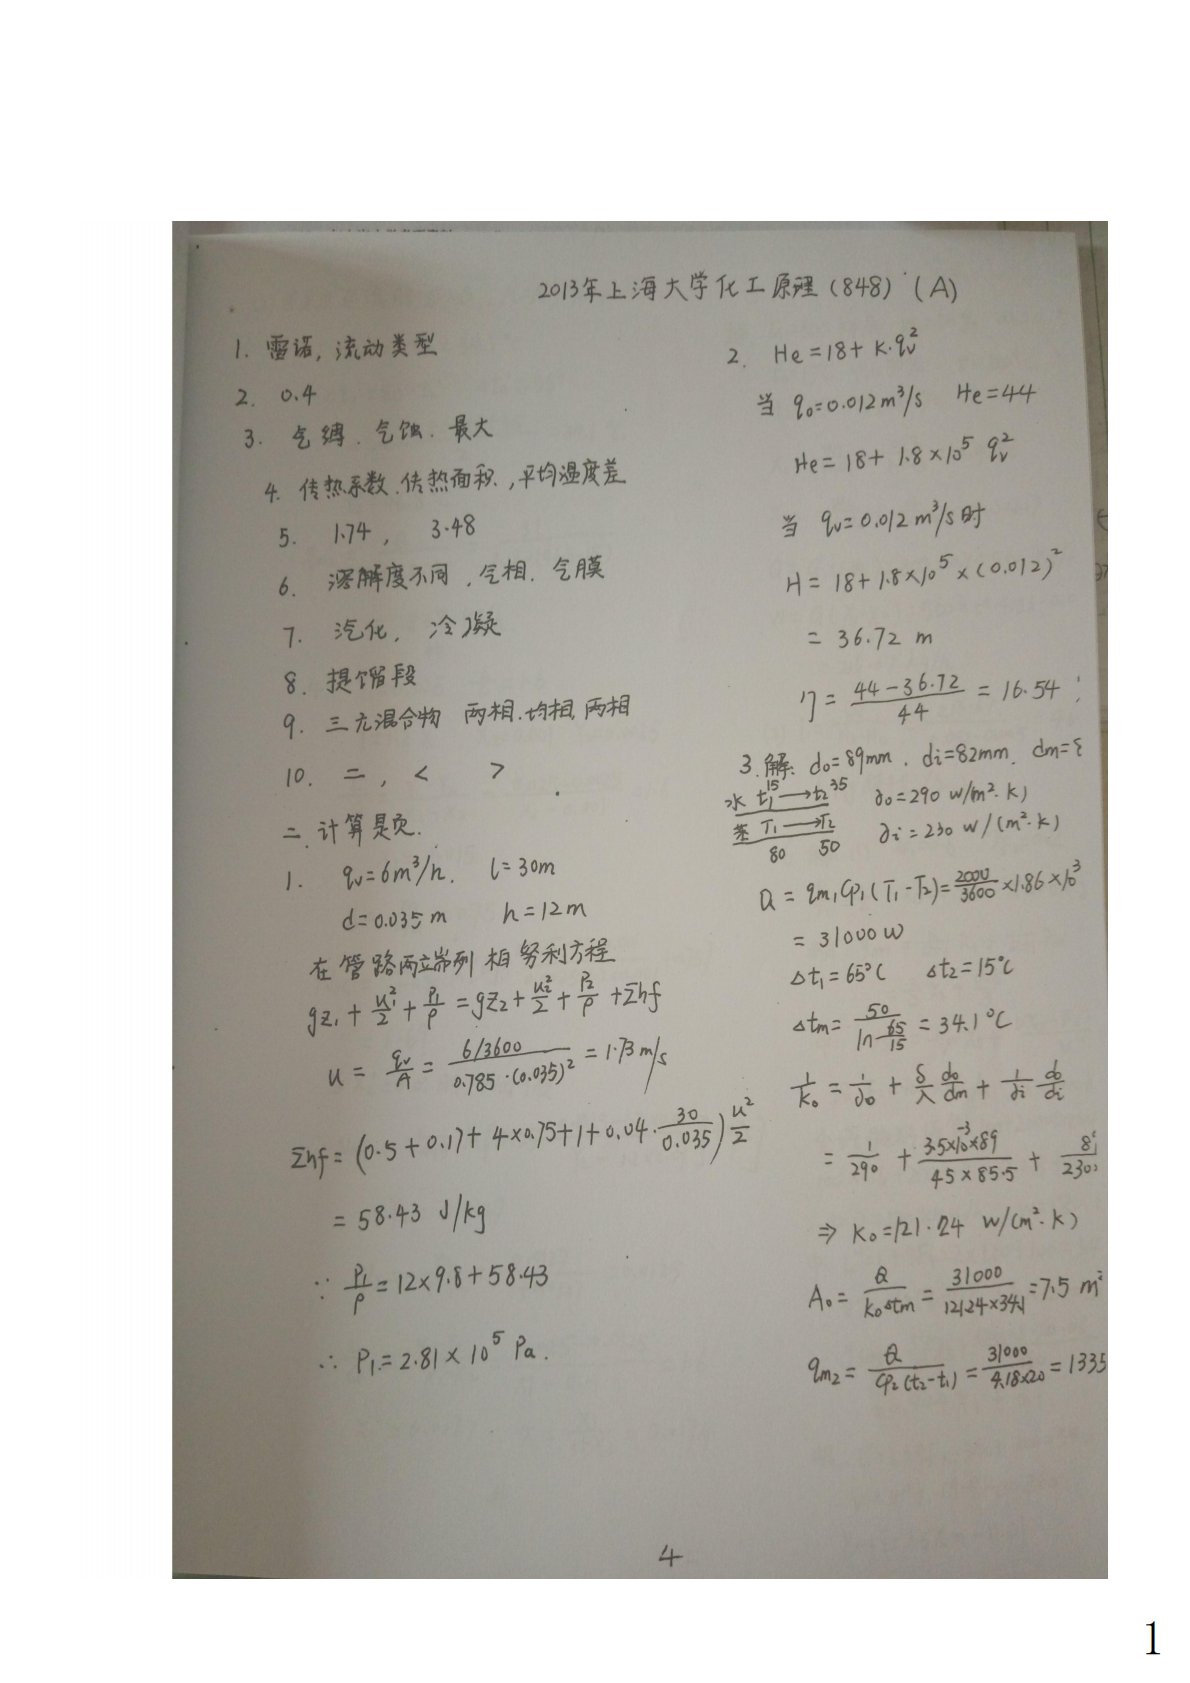 2013年上海大学化工原理(848) (A)
1. 雷诺, 流动类型
2. 0.4
3. 气缚、气蚀、最大
4. 传热系数、传热面积, 平均温度差
5. 1.74, 3.48
6. 溶解度不同, 气相、气膜
7. 汽化, 冷凝
8. 提馏段
9. 三元混合物 两相、均相、两相
10. 二, < >
二. 计算题.
1. qv=6m³/h. l=30m
d=0.035m h=12m
在管路两端列柏努利方程
gz₁ + u₁²/2 + P₁/ρ = gz₂ + u₂²/2 + P₂/ρ + Σhf
u = qv/A = (6/3600)/(0.785·(0.035)²) = 1.73 m/s
Σhf = (0.5+0.17+4×0.75+1+0.04·30/0.035) u²/2
= 58.43 J/kg
∵ P₁/ρ = 12×9.8+58.43
∴ P₁=2.81×10⁵ Pa.
2. He=18+K·qv²
当 q₀=0.012m³/s He=44
He=18+1.8×10⁵ qv²
当 qv=0.012m³/s时
H=18+1.8×10⁵×(0.012)²
= 36.72 m
η = (44-36.72)/44 = 16.54
3.解: do=89mm. di=82mm. dm=
水 t₁ 15 → t₂ 35 ∂o=290 w/(m²·k)
苯 T₁ → T₂ ∂i=230 w/(m²·k)
80 50
Q = qm₁Cp₁(T₁-T₂) = 2000/3600 ×1.86×10³
= 31000w
Δt₁=65℃ Δt₂=15℃
Δtm = 50/(ln 65/15) = 34.1℃
1/Ko = 1/∂o + δ/λ do/dm + 1/∂i do/di
= 1/290 + (3.5×10⁻³×89)/(45×85.5) +
⇒ Ko=121.24 w/(m²·k)
Ao = Q/(KoΔtm) = 31000/(121.24×34.1) = 7.5 m²
qm₂ = Q/(Cp₂(t₂-t₁)) = 31000/(4.18×20) = 1335
4
1